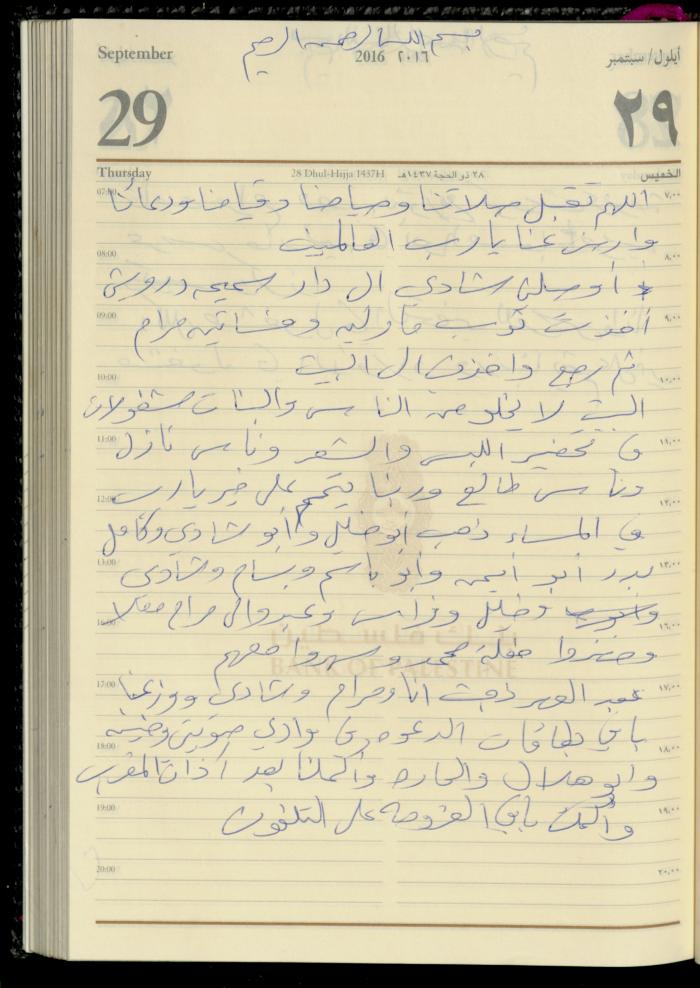 بسم الله الرحمن الرحيم
September
2016 ٢٠١٦
أيلول/ سبتمبر
29
٢٩
Thursday
28 Dhul-Hijja 1437H
٢٨ ذو الحجة ١٤٣٧هـ
الخميس
07:00 اللهم تقبل صلاتنا وصيامنا وقيامنا ودعائنا ٧,٠٠
وارض عنا يا رب العالمين
08:00 ٨,٠٠
أوصلني شادي ال دار سميحه درويش
09:00 أخذت ثوب مارليه وفساتيه مرام ٩,٠٠
ثم رجع واخذني ال البيت
10:00 ١٠,٠٠
البيت لا يخلو من الناس والبنات مشغولات
11:00 في تحضير اللبس والشعر وناس نازل ١١,٠٠
وناس طالع وربنا يتمم على خير يارب
12:00 ١٢,٠٠
في المساء ذهب ابو خليل وابو شادي وكامل
13:00 بدر أبو أيمن وابو باسم وبسام وشادي ١٣,٠٠
وخليل وفراس وعبد وال مرام
16:00 ١٦,٠٠
وحضروا حفلة محمد وسهروا معهم
بنك فلسطين
BANK OF PALESTINE
17:00 بعد العصر ذهبت انا ومرام وشادي ووزعنا ١٧,٠٠
باقي بطاقات الدعوه في وادي
18:00 ١٨,٠٠
وابو هلال والحاره وأكملنا بعد آذان المغرب
19:00 وأكملت باقي العزومه على التلفون ١٩,٠٠
20:00 ٢٠,٠٠